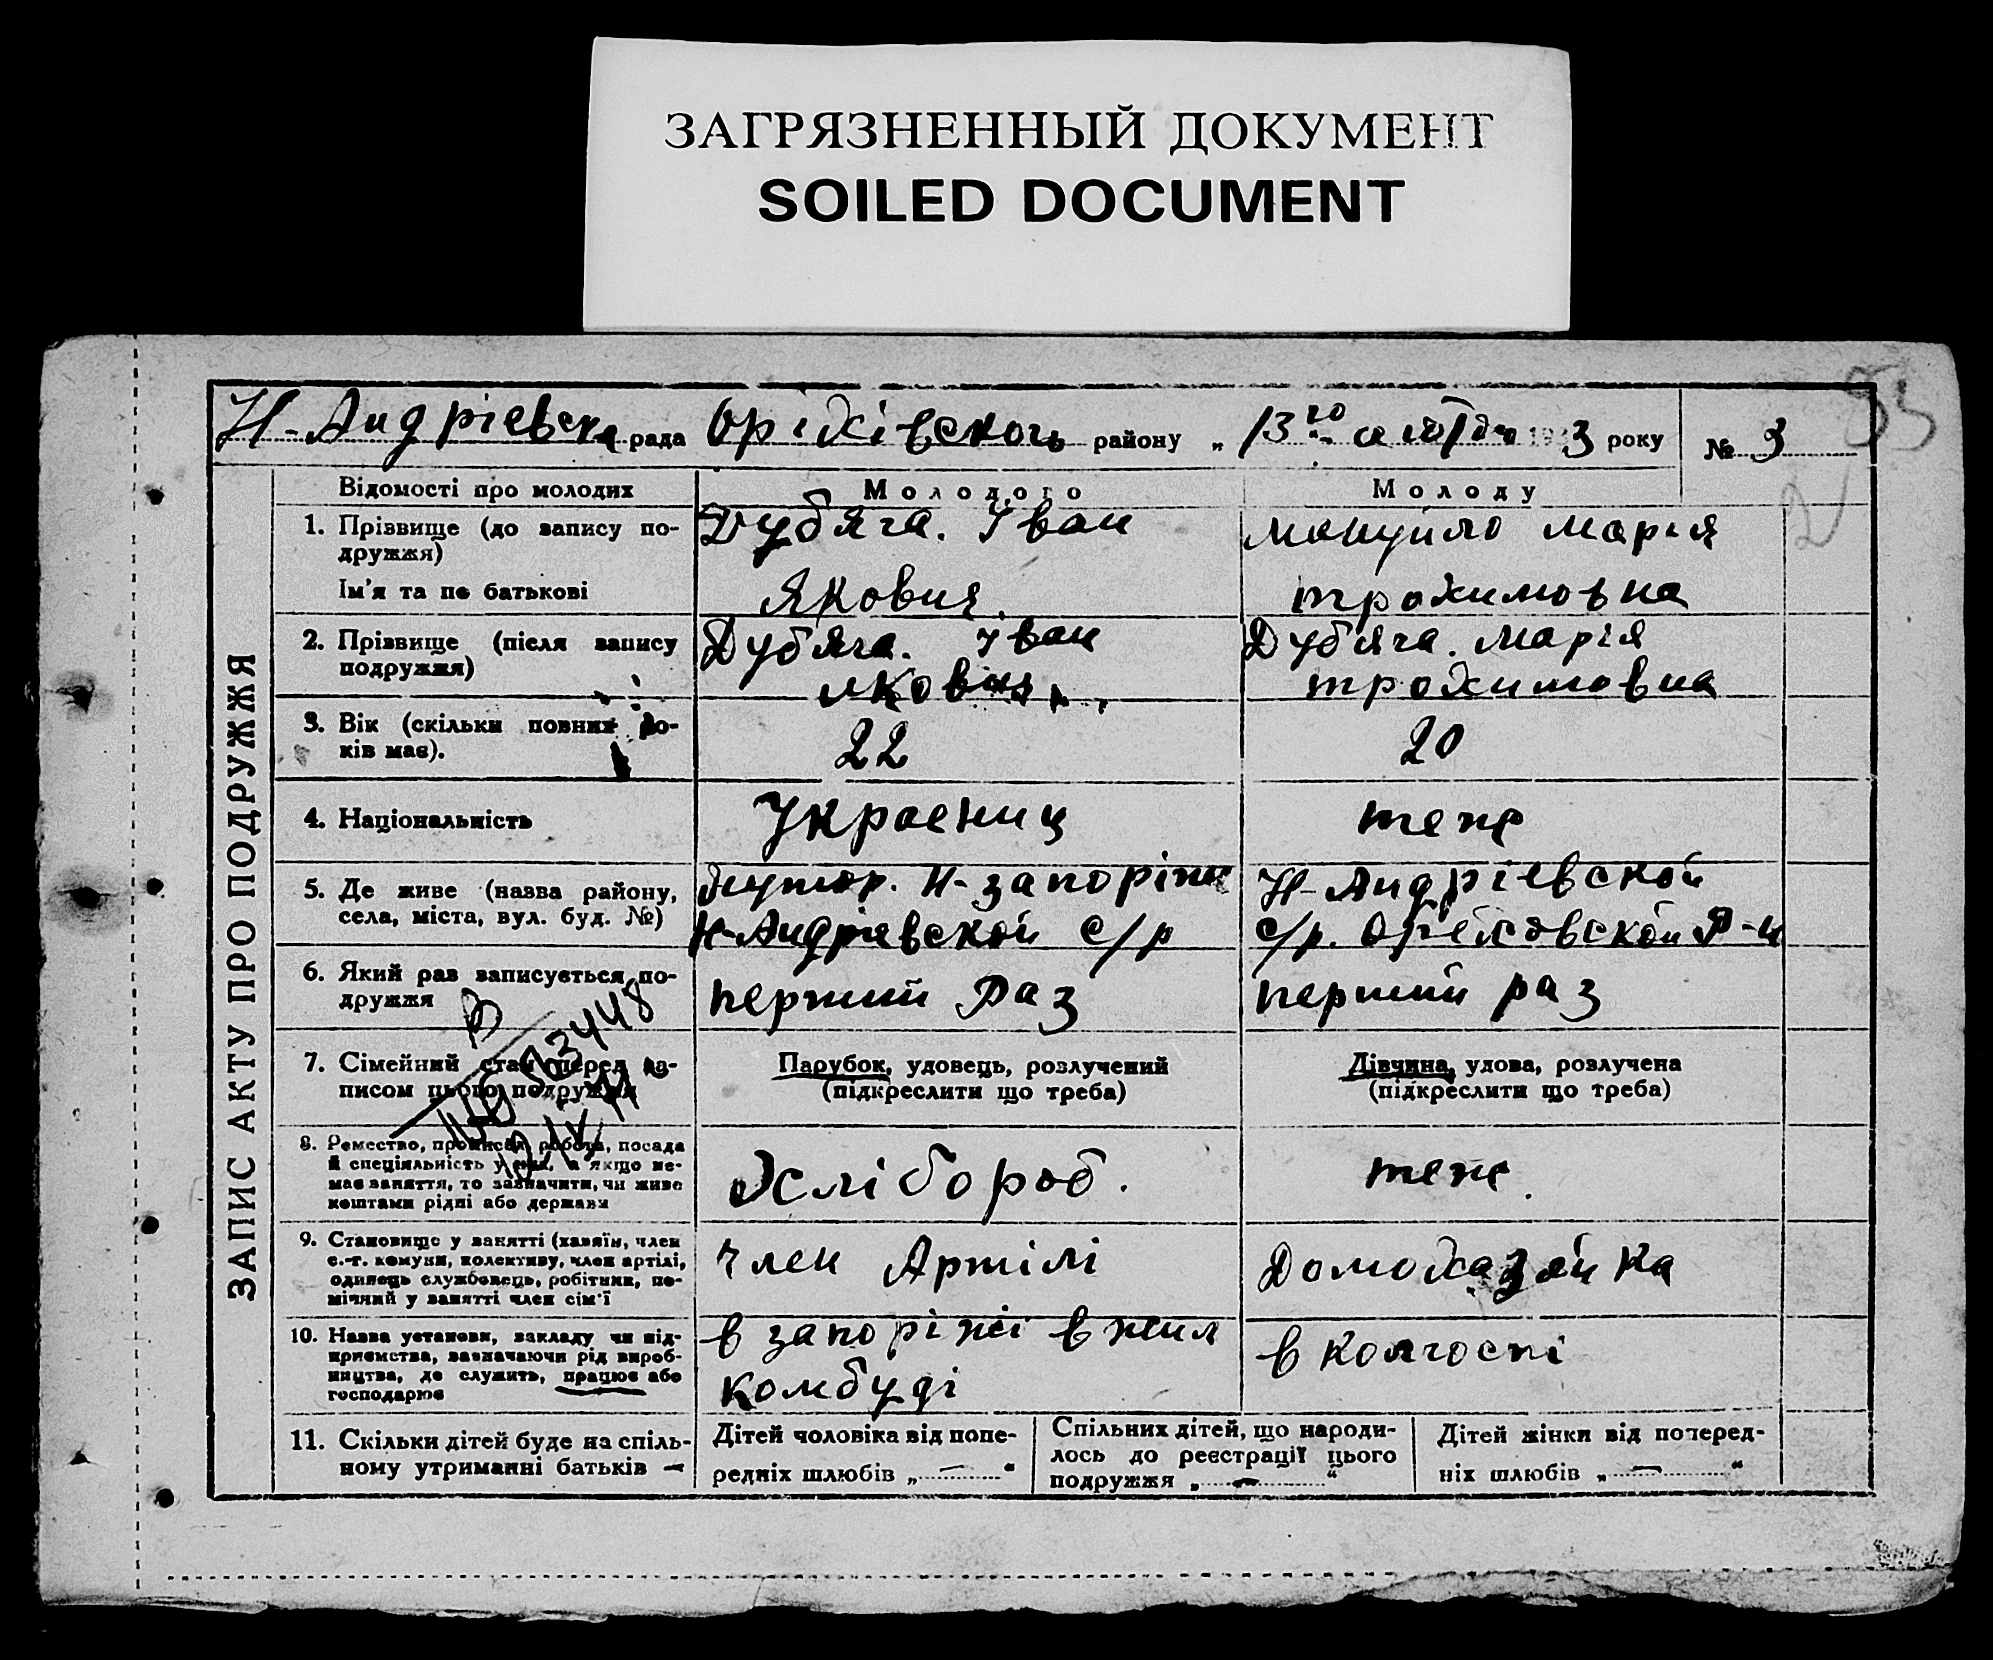 ЗАГРЯЗНЕННЫЙ ДОКУМЕНТ
SOILED DOCUMENT
Н-Андріевска рада Оріхівского району „13го лютого 1933 року № 3
ЗАПИС АКТУ ПРО ПОДРУЖЖЯ
Відомості про молодих Молодого Молоду
1. Прізвище (до запису подружжя) Дубяга. Іван Мануйло Мария
Ім'я та по батькові Якович. Трохимовна
2. Прізвище (після запису подружжя) Дубяга. Іван Дубяга. Марія
Якович Трохимовна
3. Вік (скільки повних років має). 22 20
4. Національність Украениц теже
5. Де живе (назва району, Хутор. Н-Запоріжа Н-Андріевской
села, міста, вул. буд. №) Н-Андріевской с/р с/р. Ореховской Р-н
6. Який раз записується подружжя перший Раз перший раз
7. Сімейний стан перед записом цього подружжя Парубок, удовець, розлучений Дівчина, удова, розлучена
(підкреслити що треба) (підкреслити що треба)
8. Ремество, промисел, робота, посада
й спеціяльність у них, а якщо немає заняття, то зазначити, чи живе
коштами рідні або держави Хлібороб. теже.
9. Становище у занятті (хазяїн, член
с.-г. комуни, колективу, член артілі,
одинець службовець, робітник, помічний у занятті член сім'ї член Артілі Домохазяйка
10. Назва установи, закладу чи підприємства, зазначаючи рід виробництва, де служить, працює або
господарює в Запоріжі в жил комбуді в колгоспі
11. Скільки дітей буде на спільному утриманні батьків —
Дітей чоловіка від попередніх шлюбів „—“
Спільних дітей, що народилось до реєстрації цього
подружжя „—“
Дітей жінки від попередніх шлюбів „—“